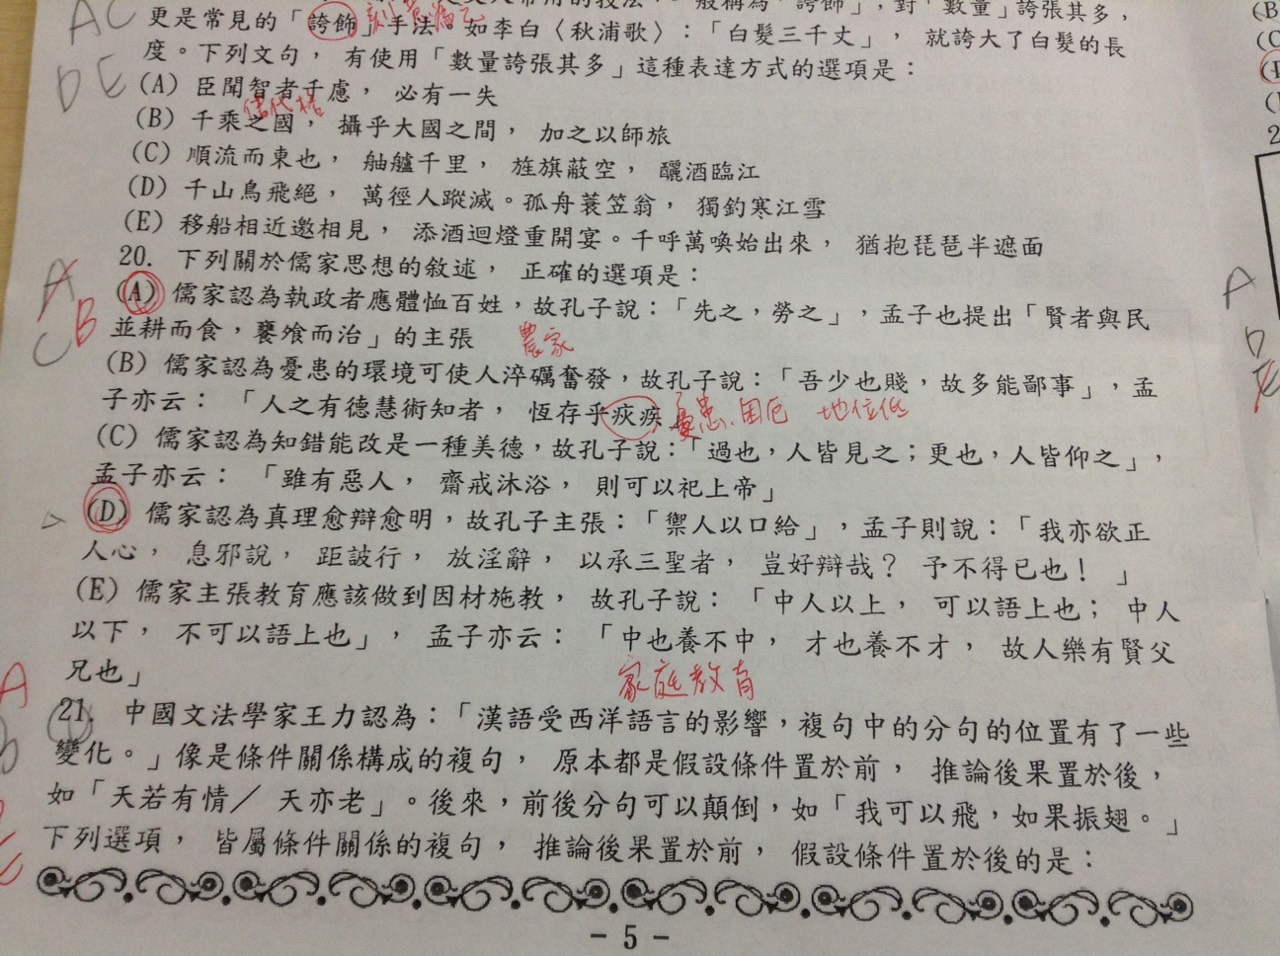 更是常見的「誇飾」手法。如李白〈秋浦歌〉：「白髮三千丈」，就誇大了白髮的長
度。下列文句，有使用「數量誇張其多」這種表達方式的選項是：
(A) 臣聞智者千慮，必有一失
(B) 千乘之國，攝乎大國之間，加之以師旅
(C) 順流而東也，舳艫千里，旌旗蔽空，釃酒臨江
(D) 千山鳥飛絕，萬徑人蹤滅。孤舟蓑笠翁，獨釣寒江雪
(E) 移船相近邀相見，添酒迴燈重開宴。千呼萬喚始出來，猶抱琵琶半遮面
20. 下列關於儒家思想的敘述，正確的選項是：
(A) 儒家認為執政者應體恤百姓，故孔子說：「先之，勞之」，孟子也提出「賢者與民
並耕而食，饔飧而治」的主張
農家
(B) 儒家認為憂患的環境可使人淬礪奮發，故孔子說：「吾少也賤，故多能鄙事」，孟
子亦云：「人之有德慧術知者，恆存乎疢疾」
憂患.困厄 地位低
(C) 儒家認為知錯能改是一種美德，故孔子說：「過也，人皆見之；更也，人皆仰之」，
孟子亦云：「雖有惡人，齋戒沐浴，則可以祀上帝」
(D) 儒家認為真理愈辯愈明，故孔子主張：「禦人以口給」，孟子則說：「我亦欲正
人心，息邪說，距詖行，放淫辭，以承三聖者，豈好辯哉？予不得已也！」
(E) 儒家主張教育應該做到因材施教，故孔子說：「中人以上，可以語上也；中人
以下，不可以語上也」，孟子亦云：「中也養不中，才也養不才，故人樂有賢父
兄也」
家庭教育
21. 中國文法學家王力認為：「漢語受西洋語言的影響，複句中的分句的位置有了一些
變化。」像是條件關係構成的複句，原本都是假設條件置於前，推論後果置於後，
如「天若有情／天亦老」。後來，前後分句可以顛倒，如「我可以飛，如果振翅。」
下列選項，皆屬條件關係的複句，推論後果置於前，假設條件置於後的是：
- 5 -
AC
DE
A
B
C
A
D
E
A